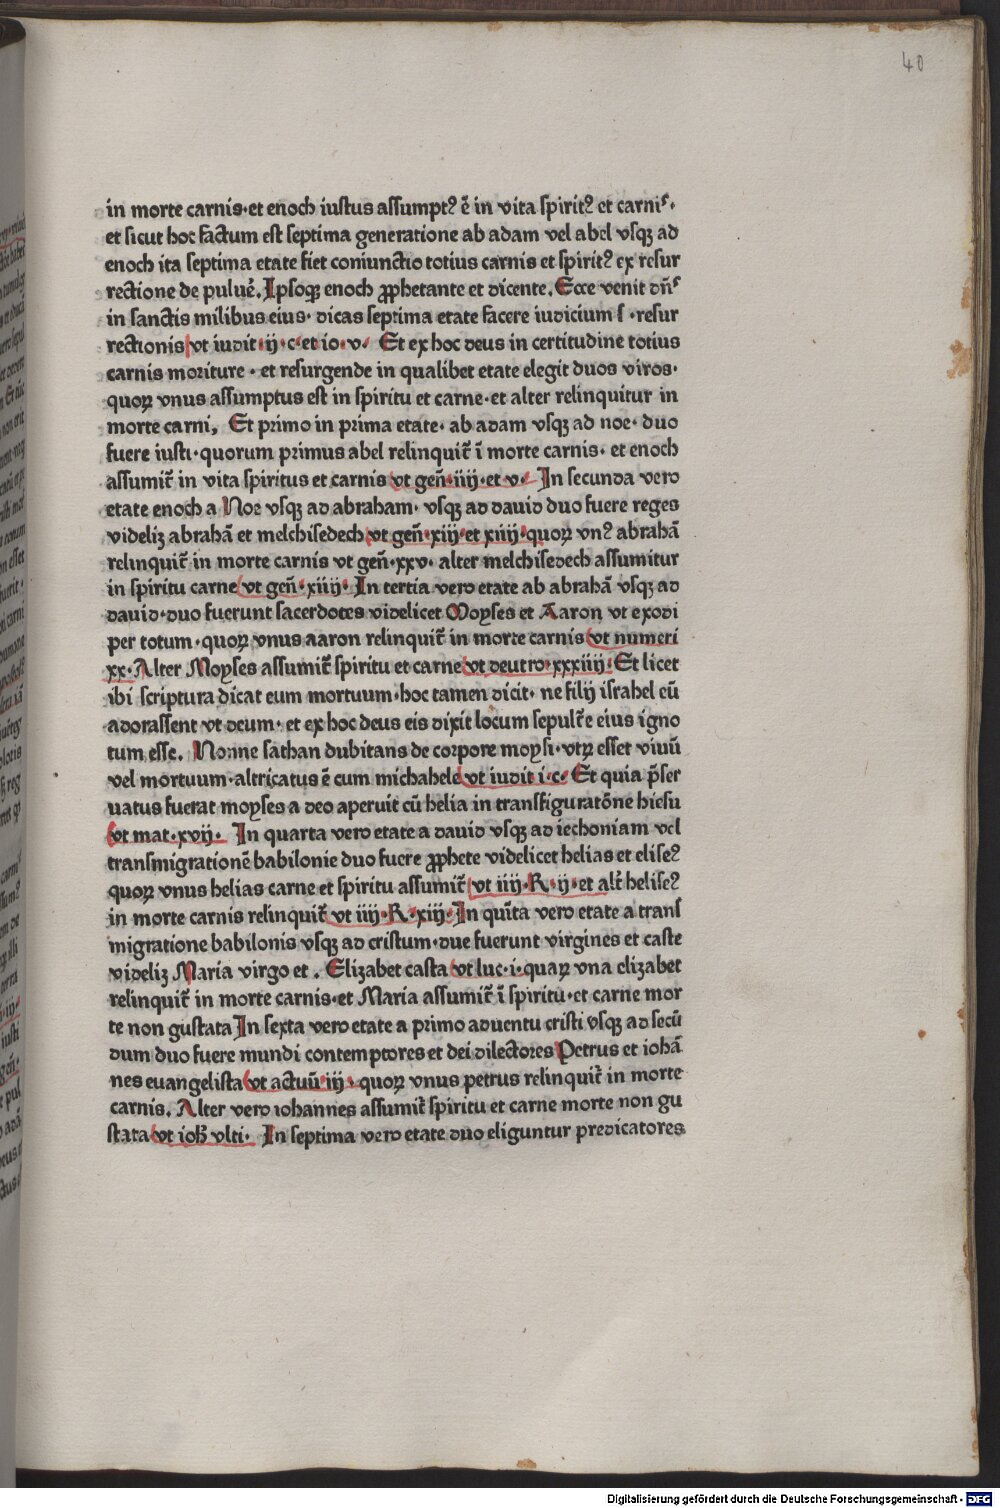 40
in morte carnis·et enoch iustus assumptꝰ ē in vita spiritꝰ et carnis·
et sicut hoc factum est septima generatione ab adam vel abel vsqꝫ ad
enoch ita septima etate fiet coniunctio totius carnis et spiritꝰ ex resur
rectione de puluē. Ipsoqꝫ enoch ꝓphetante et dicente. Ecce venit dn̄s
in sanctis milibus eius· dicas septima etate facere iudicium s·resur
rectionis vt iudit·ij·c·et io·v· Et ex hoc deus in certitudine totius
carnis moriture·et resurgende in qualibet etate elegit duos viros·
quoꝝ vnus assumptus est in spiritu et carne·et alter relinquitur in
morte carni, Et primo in prima etate·ab adam vsqꝫ ad noe·duo
fuere iusti·quorum primus abel relinquit̄ ī morte carnis·et enoch
assumit̄ in vita spiritus et carnis vt gen̄·iiij·et v· In secunda vero
etate enoch a Noe vsqꝫ ad abraham·vsqꝫ ad dauid duo fuere reges
videliꝫ abrahā et melchisedech vt gen̄·xiij·et xiiij·quoꝝ vnꝰ abrahā
relinquit̄ in morte carnis vt gen̄·xxv·alter melchisedech assumitur
in spiritu carne vt gen̄·xiiij· In tertia vero etate ab abrahā vsqꝫ ad
dauid·duo fuerunt sacerdotes videlicet Moyses et Aaron vt exodi
per totum·quoꝝ vnus aaron relinquit̄ in morte carnis vt numeri
xx·Alter Moyses assumit̄ spiritu et carne vt deutro·xxxiiij·Et licet
ibi scriptura dicat eum mortuum·hoc tamen dicit·ne filij israhel cū
adorassent vt deum·et ex hoc deus eis dixit locum sepult̄e eius igno
tum esse. Nonne sathan dubitans de corpore moysi·vtꝝ esset viuū
vel mortuum·altricatus ē cum michahele vt iudit i·c· Et quia p̄ser
uatus fuerat moyses a deo aperuit cū helia in transfiguratōne hiesu
vt mat·xvij· In quarta vero etate a dauid vsqꝫ ad iechoniam vel
transmigrationē babilonie duo fuere ꝓphete videlicet helias et eliseꝰ
quoꝝ vnus helias carne et spiritu assumit̄ vt iiij·R·ij·et alt̄ heliseꝰ
in morte carnis relinquit̄ vt iiij·R·xiij·In quīta vero etate a trans
migratione babilonis vsqꝫ ad cristum·due fuerunt virgines et caste
videliꝫ Maria virgo et. Elizabet casta vt luc·i·quaꝝ vna elizabet
relinquit̄ in morte carnis·et Maria assumit̄ ī spiritu·et carne mor
te non gustata In sexta vero etate a primo aduentu cristi vsqꝫ ad secū
dum duo fuere mundi contemptores et dei dilectores Petrus et iohā
nes euangelista vt actuū iij·quoꝝ vnus petrus relinquit̄ in morte
carnis. Alter vero iohannes assumit̄ spiritu et carne morte non gu
stata vt ioh̄ vlti· In septima vero etate duo eliguntur predicatores
Digitalisierung gefördert durch die Deutsche Forschungsgemeinschaft - DFG